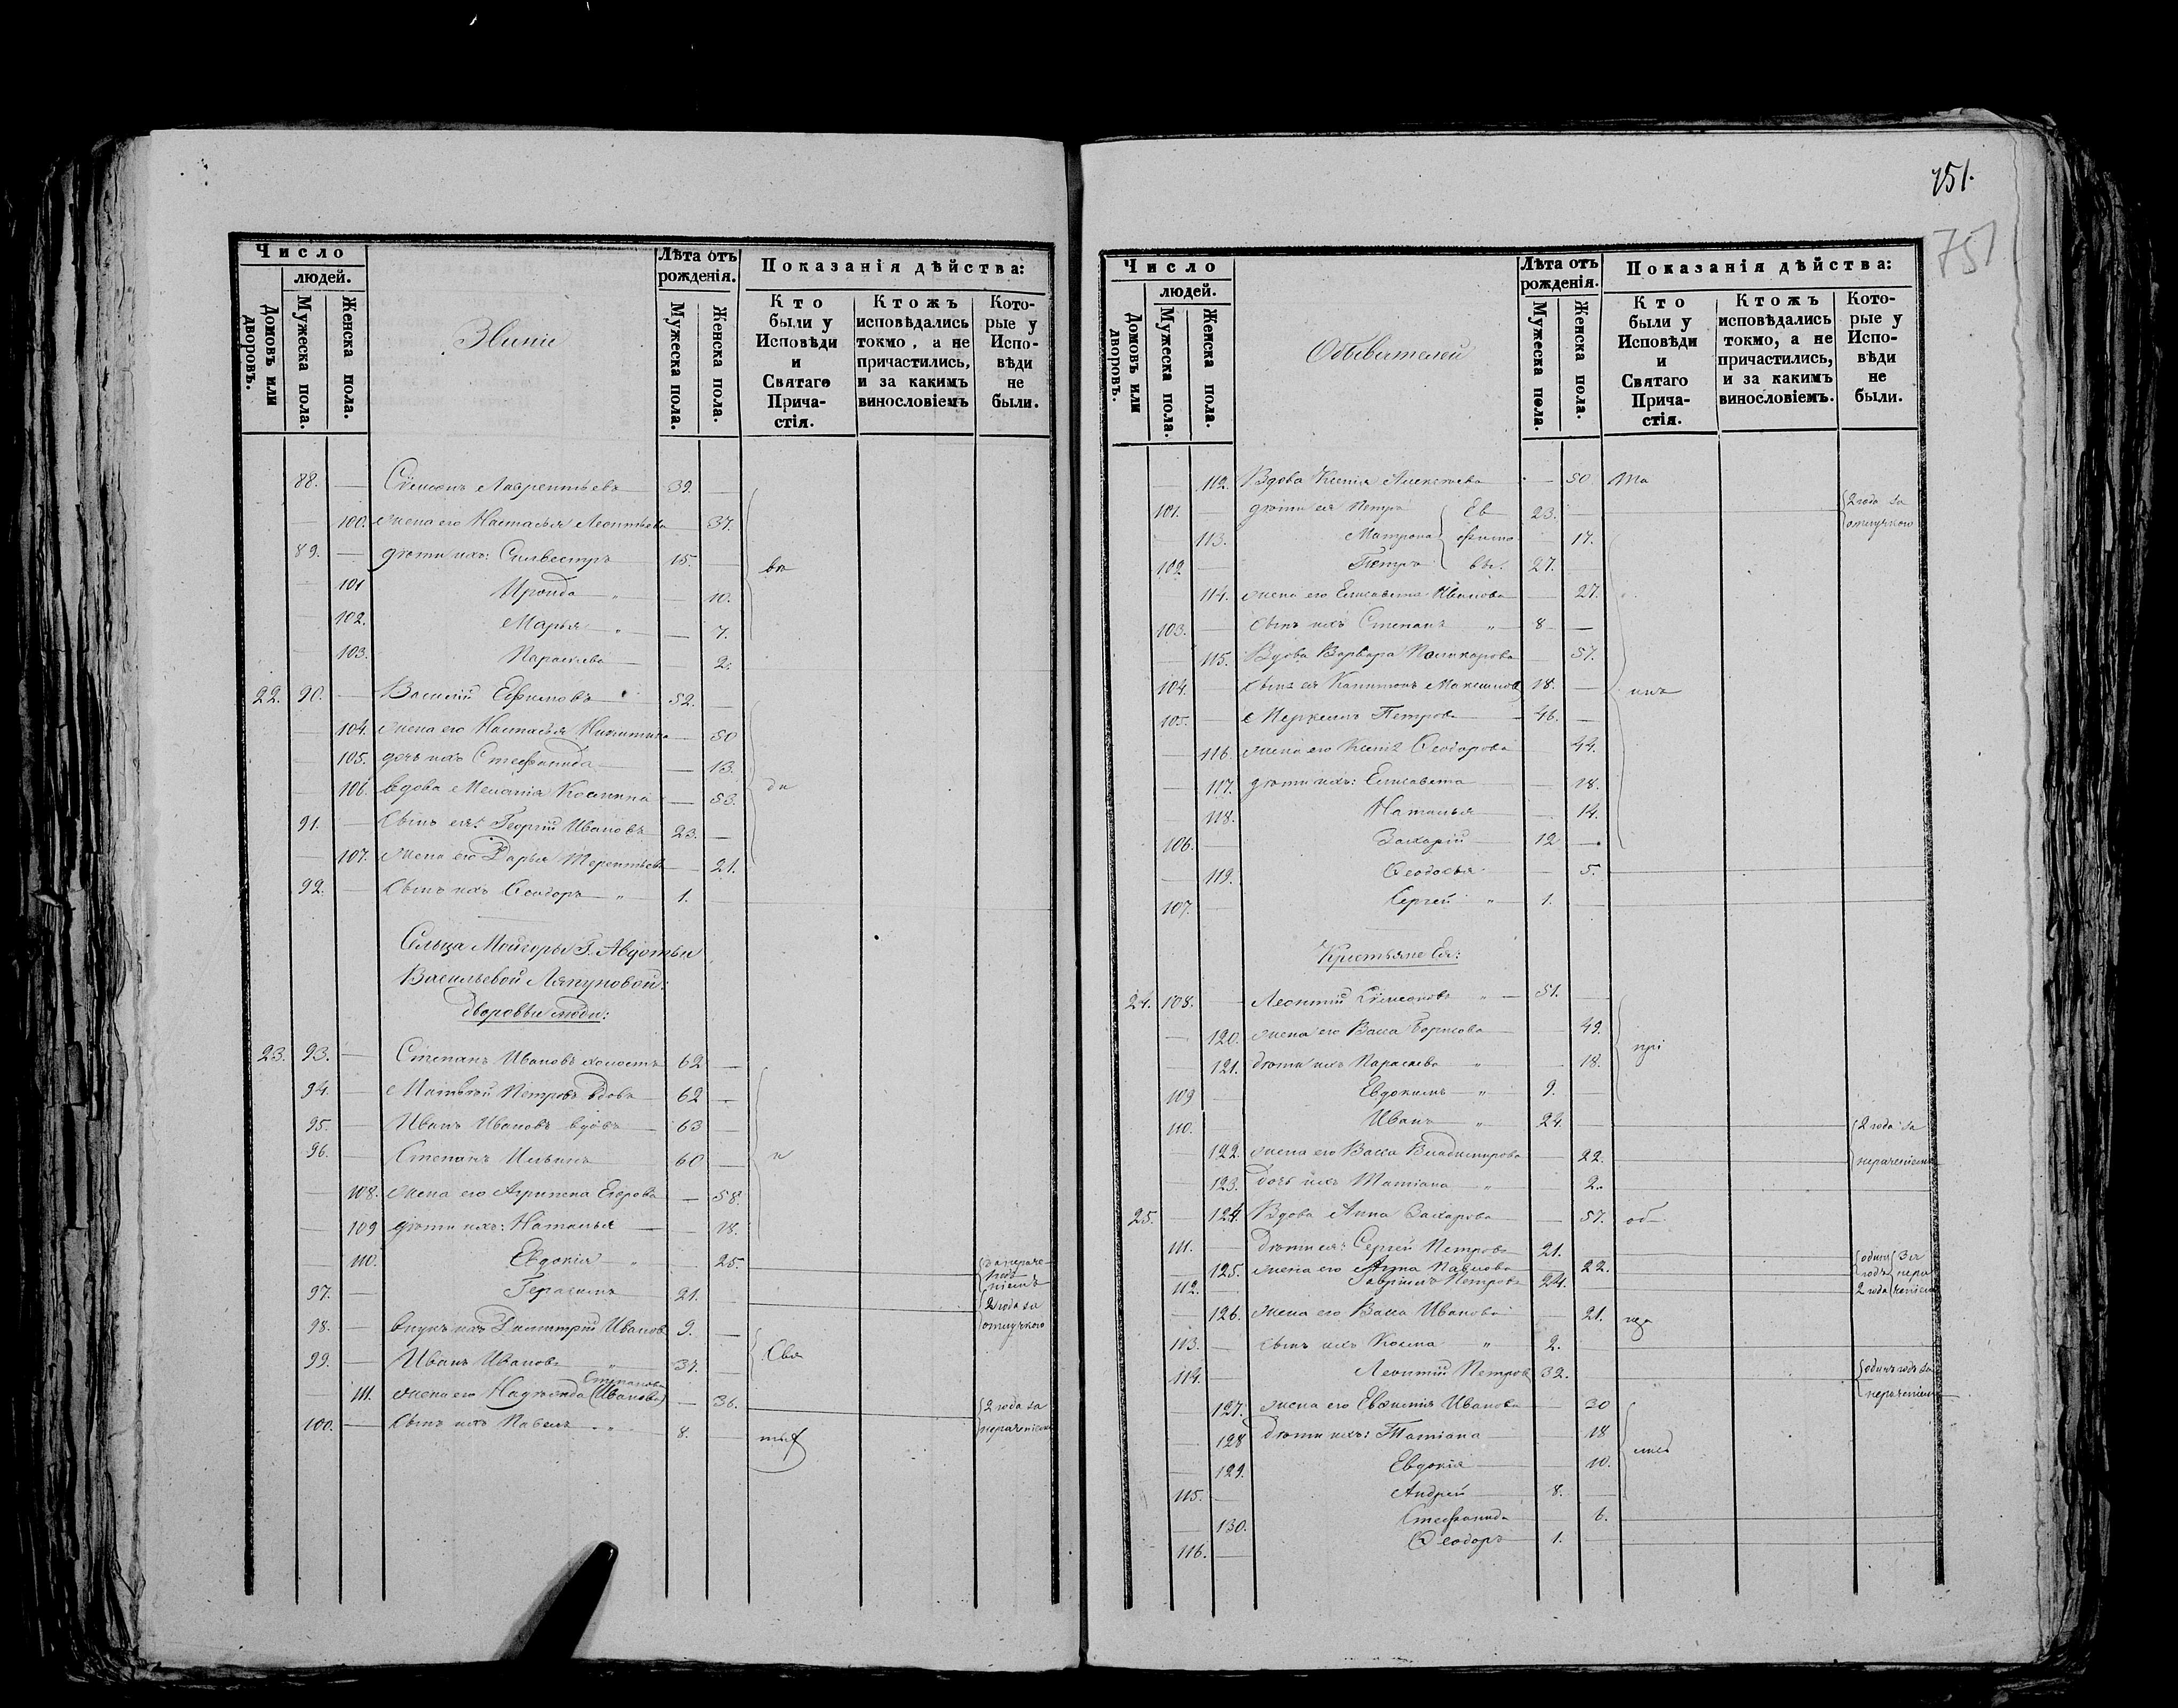 Число
людей.
Домовъ или дворовъ.
Мужеска пола.
Женска пола.
Званіе
Лѣта отъ рожденія.
Мужеска пола.
Женска пола.
Показанія дѣйства:
Кто были у Исповѣди и Святаго Причастія.
Ктожъ исповѣдались токмо, а не причастились, и за какимъ винословіемъ
Которые у Исповѣди не были.
88. — Сѵмеонъ Лаврентьевъ 39. —
— 100. жена его Настасья Леонтьева — 37.
89. — дѣти ихъ: Силвестръ 15. — ва
— 101 Ираида „ — 10.
— 102. Марья „ — 7.
— 103. Параскева — 2.
22. 90. — Василій Ефимовъ 52. —
— 104. жена его Настасья Никитина — 50
— 105. дочь ихъ Стефанида — 13.
— 106. вдова Меланія Космина — 53. ди
91. — сынъ ея: Георгій Ивановъ 23. —
— 107. жена его Дарья Терентьева — 21.
92. — сынъ ихъ Ѳеодоръ „ 1. —
Сельца Мойгоры Г. Авдотьи
Васильевой Ляпуновой:
дворовые люди:
23. 93. — Степанъ Ивановъ холостъ 62 —
94. — Матвѣй Петровъ вдовъ 62 —
95. — Иванъ Ивановъ вдовъ 63 —
96. — Степанъ Ильинъ 60 — и
— 108. жена его Агрипена Егорова — 58.
— 109 дѣти ихъ: Наталья — 18.
— 110. Евдокія „ — 25.
97. — Герасимъ 21. — 2 года за отлучкою
98. — внукъ ихъ Димитрій Ивановъ 9. —
99. — Иванъ Ивановъ „ 37. — Свя
— 111. жена его Надежда (Иванова) Степанова — 36. 2 года за нераченіемъ
100. — сынъ ихъ Павелъ „ 8. — ты
751.
751
Число
людей.
Домовъ или дворовъ.
Мужеска пола.
Женска пола.
Обывателей
Лѣта отъ рожденія.
Мужеска пола.
Женска пола.
Показанія дѣйства:
Кто были у Исповѣди и Святаго Причастія.
Ктожъ исповѣдались токмо, а не причастились, и за какимъ винословіемъ.
Которые у Исповѣди не были.
— 112. Вдова Ксенія Алексѣева — 50. Та
101. — дѣти ея Петръ Ев 23. — 2 года за отлучкою
— 113. Матрона фимо — 17.
102 — Петръ вы. 27. —
— 114. жена его Елисавета Иванова — 27.
103. — сынъ ихъ Степанъ „ 8 —
— 115. Вдова Варвара Поликарпова — 57.
104. — сынъ ея Капитонъ Максимовъ 18. — инъ
105. — Меркелъ Петровъ 46. —
— 116. жена его Ксенія Ѳеодорова — 44.
— 117. дѣти ихъ: Елисавета — 18.
— 118. Наталья — 14.
106. — Захарій 12 —
— 119. Ѳеодосья — 5.
107. — Сергей „ 1. —
Крестьяне Ея:
24. 108. — Леонтій Сѵмеоновъ „ 51. —
— 120. жена его Васса Борисова — 49.
— 121. дѣти ихъ Параскева „ — 18. прі
109 — Евдокимъ „ 9. —
110. — Иванъ „ 24. — 2 года за
— 122. жена его Васса Владимирова — 22. нераченіемъ
— 123. дочь ихъ Татіана „ — 2.
25. — 124. Вдова Анна Захарова — 57. об
111. — дѣти ея: Сергей Петровъ 21. — одинъ годъ
— 125. жена его Анна Павлова — 22. За нераченіемъ
112. — Гавріилъ Петровъ 24. — 2 года
— 126. жена его Васса Иванова — 21.
113. — сынъ ихъ Косма „ 2. —
114. — Леонтій Петровъ 32. — одинъ годъ за нераченіемъ
— 127. жена его Евѳимія Иванова — 30
— 128 дѣти ихъ: Татіана — 18
— 129. Евдокія — 10.
115. — Андрей 8. —
— 130. Стефанида — 6.
116. — Ѳеодоръ 1. —